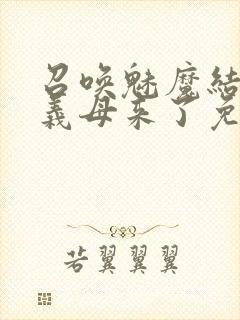 召唤魅魔结
义母来了免
若翼翼翼